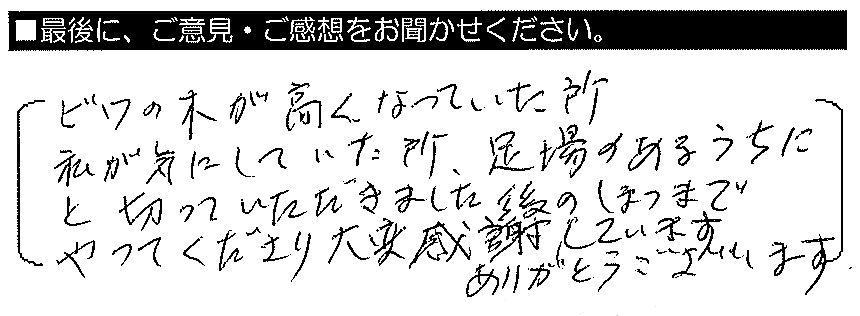 ■最後に、ご意見・ご感想をお聞かせください。
ビワの木が高くなっていた所
私が気にしていた所、足場のあるうちに
と切っていただきました後のしまつまで
やってくださり大変感謝しています
ありがとうございます